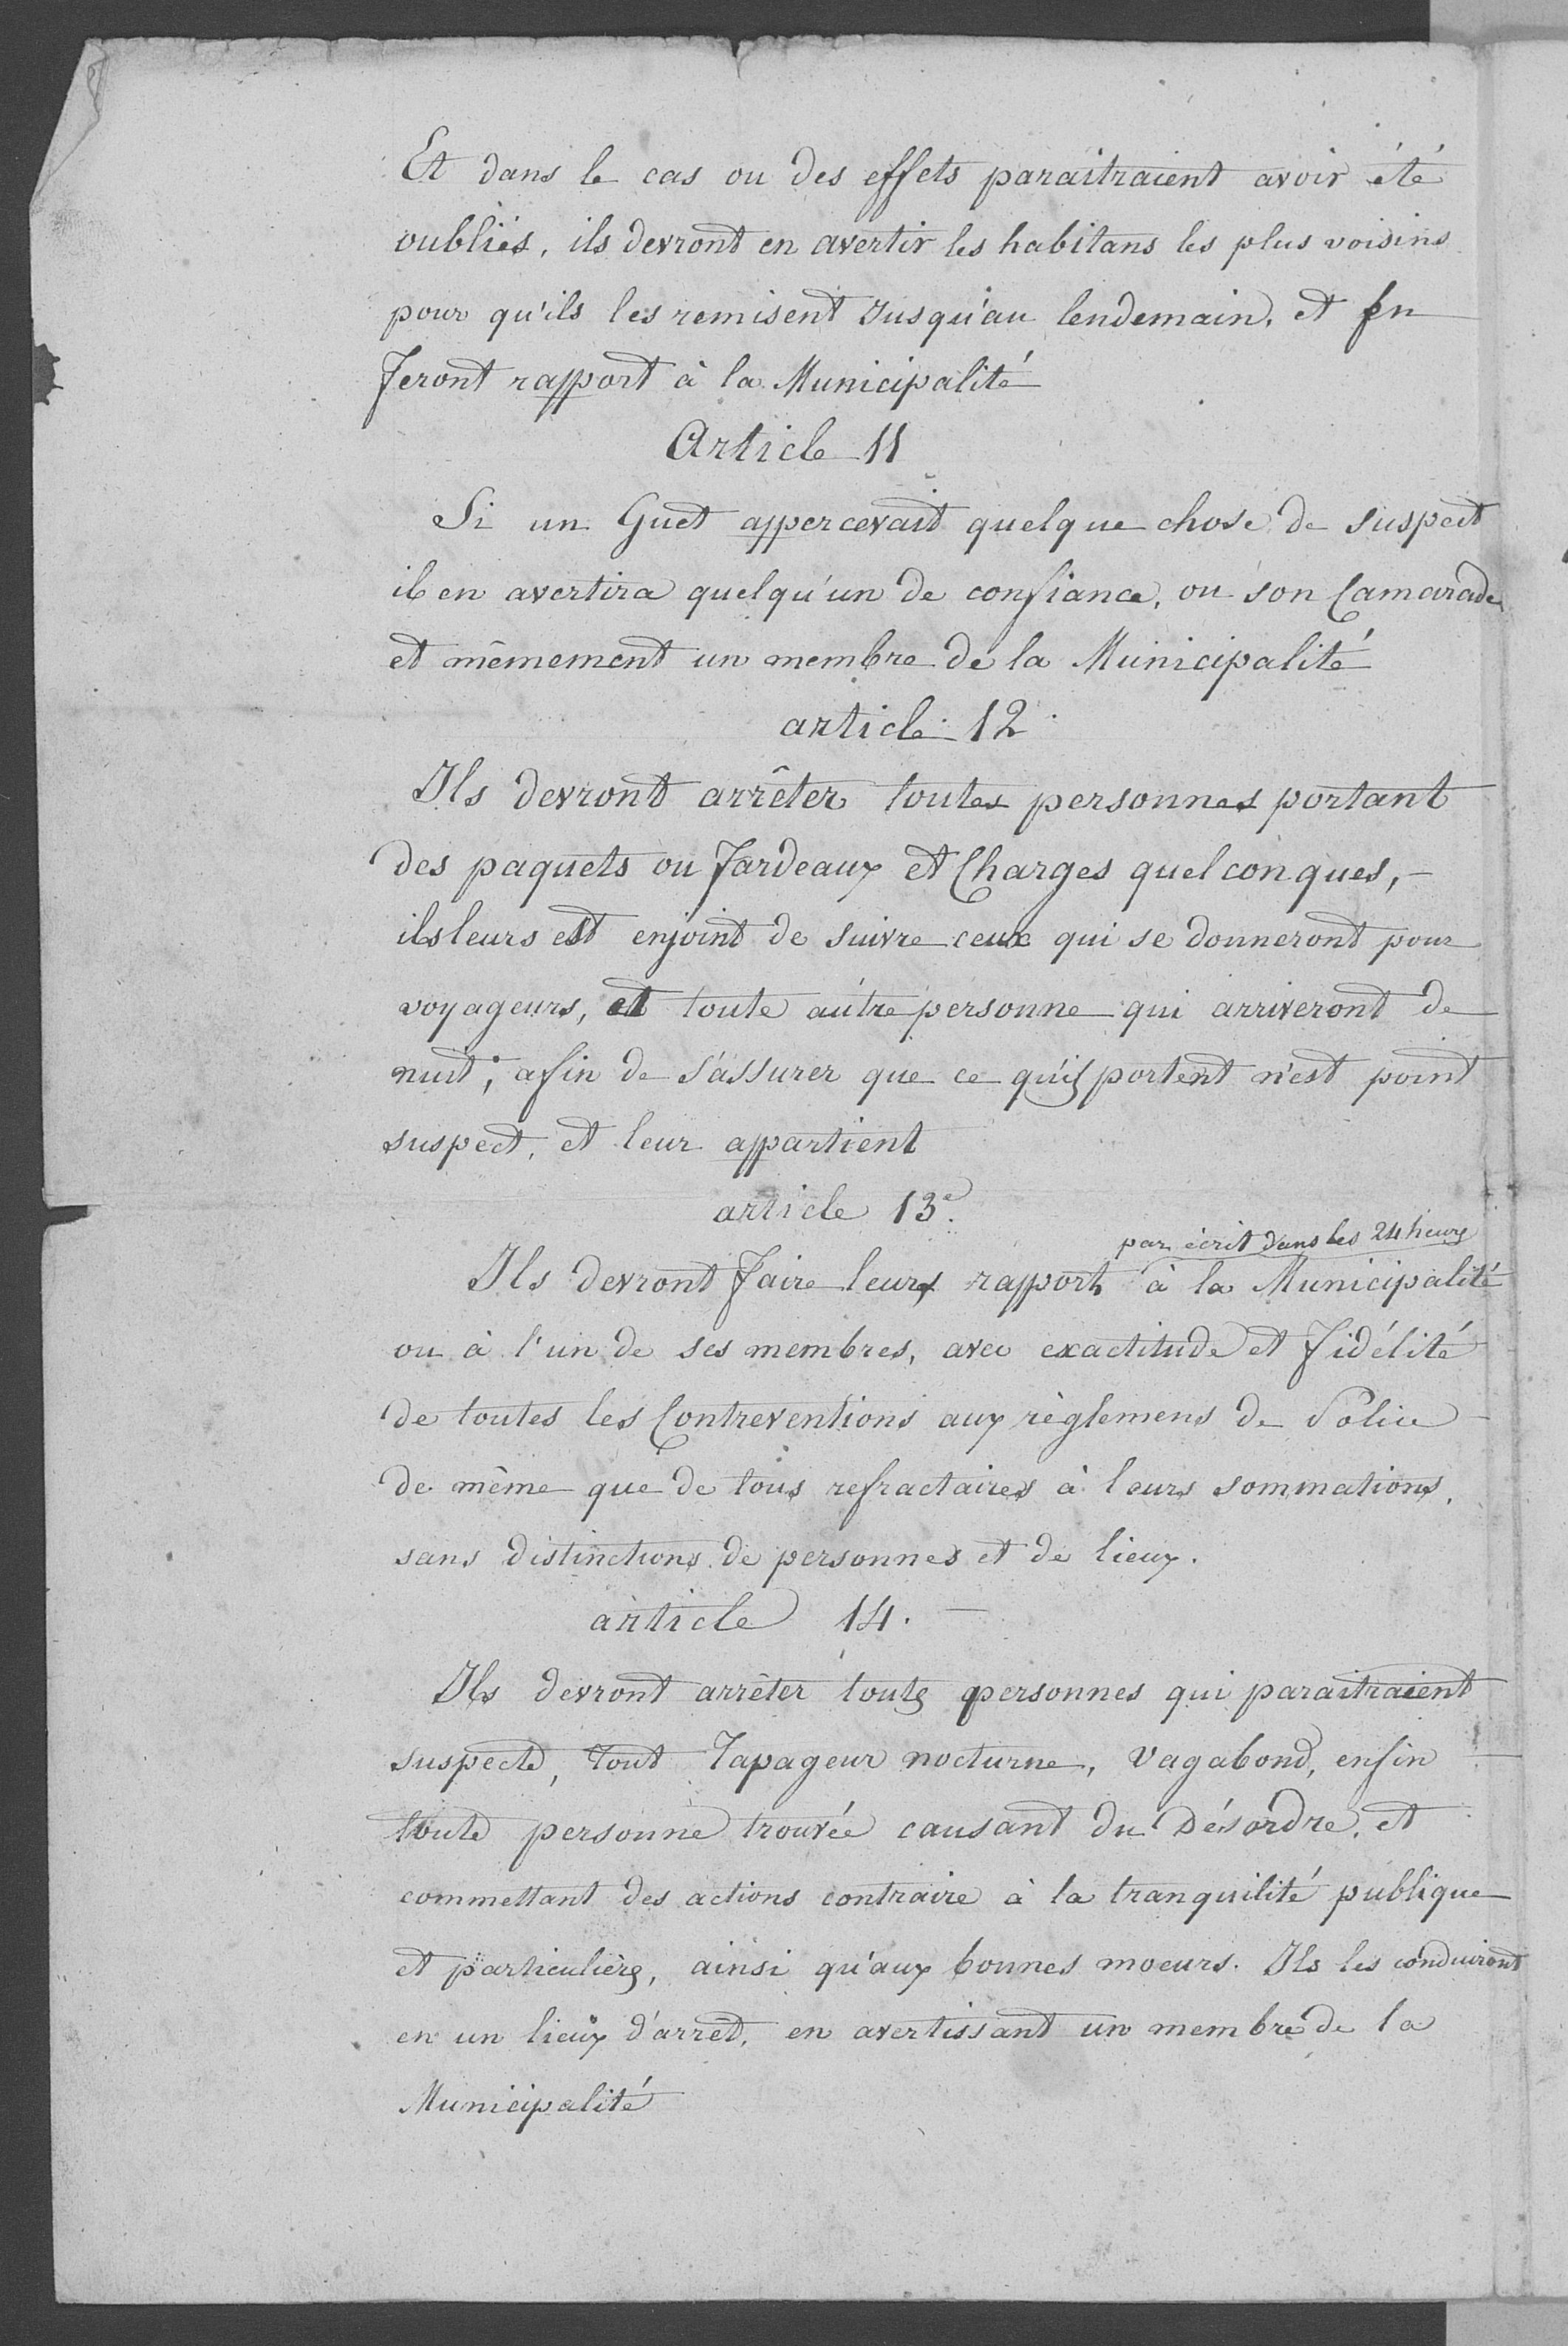 Et dans le cas ou des effets paraitraient avoir été
oubliés, ils devront en avertir les habitans les plus voisins
pour qu'ils les remisent Jusqu'au lendemain, et en
feront rapport à la Municipalité
Article 11
Si un Guet appercevait quelque chose de suspect
il en avertira quelqu'un de confiance, ou son Camarade
et mêmement un membre de la Municipalité
article 12
Ils devront arrêter toutes personnes portant
des paquets ou fardeaux et Charges quelconques,-
ils leurs est enjoint de suivre ceux qui se donneront pour
voyageurs, et toute autre personne qui arriveront de
nuit; afin de s'assurer que ce qu'ils portent n'est point
suspect, et leur appartient
article 13e.
par écrit dans les 24 heures
Ils devront faire leurs rapports à la Municipalité
ou à l'un de ses membres, avec exactitude et fidélité
de toutes les Contreventions aux règlemens de Police
de même que de tous refractaires à leurs sommations,
sans distinctions de personnes et de lieux.
article 14. —
Ils devront arrêter toutes personnes qui paraitraient
suspecte, tout Tapageur nocturne, Vagabond, enfin
toute personne trouvée causant du Désordre, et
commettant des actions contraire à la tranquilité publique
et particulière, ainsi qu'aux bonnes moeurs. Ils les conduiront
en un lieux d'arrêt, en avertissant un membre de la
Municipalité